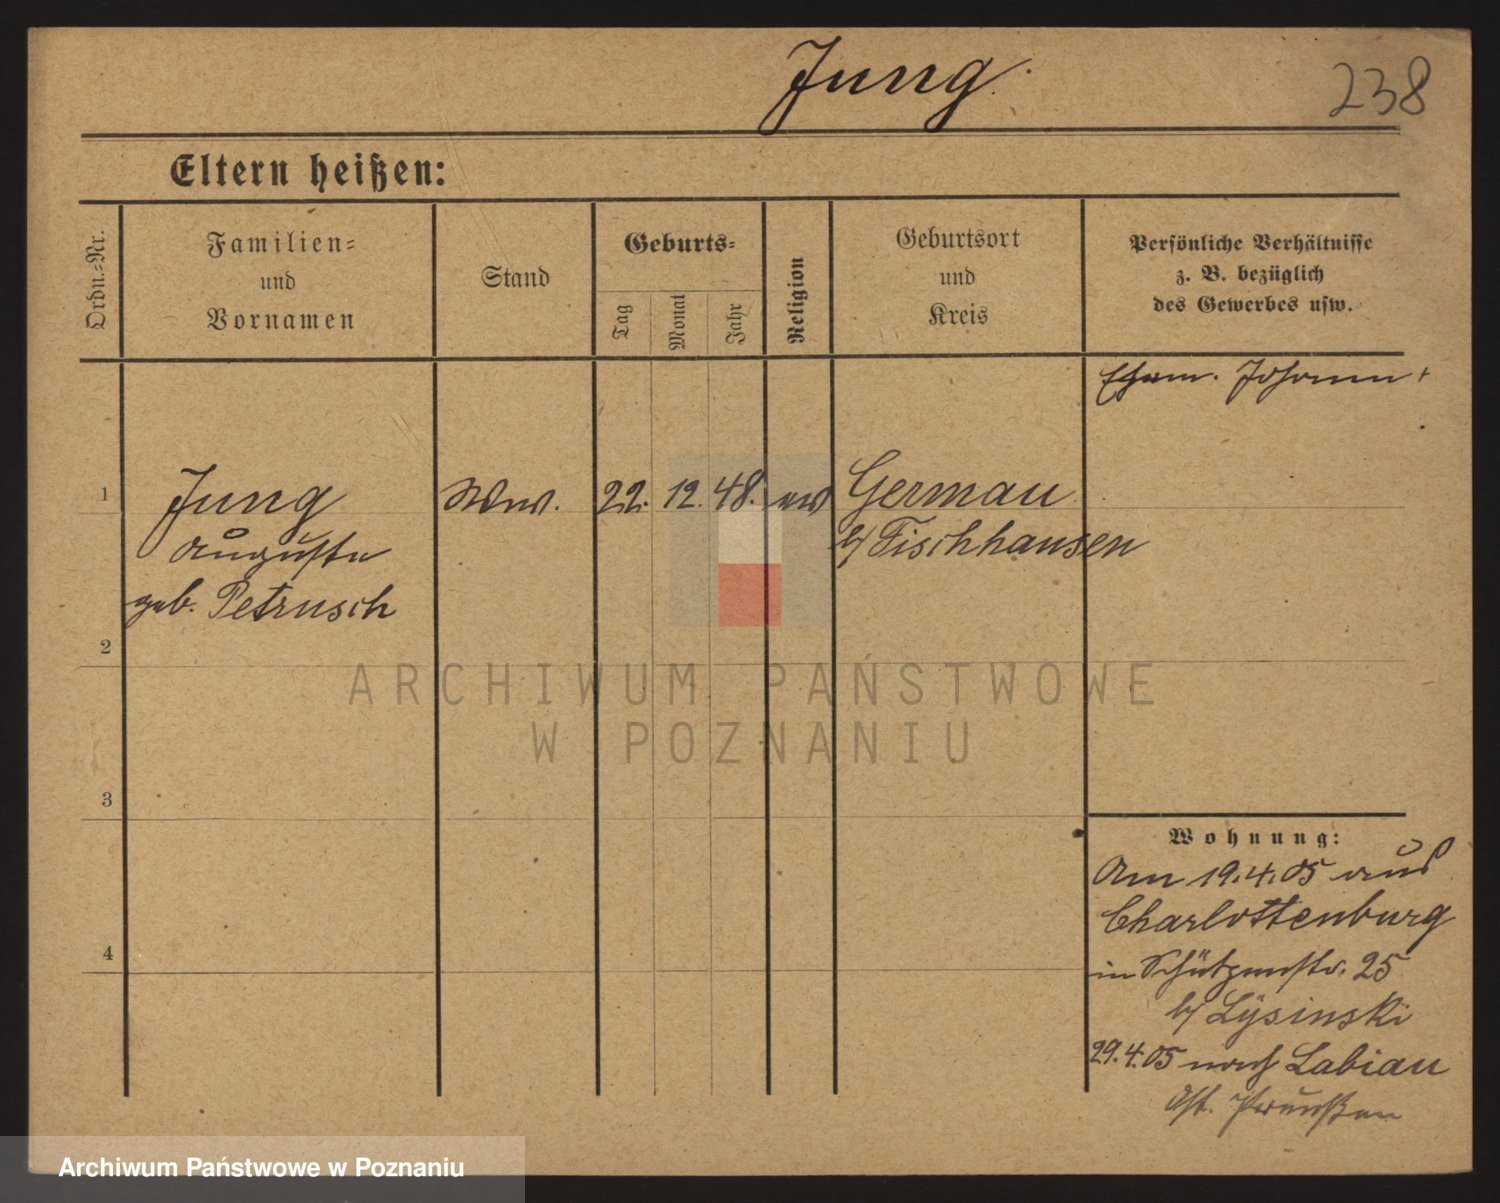 Jung.
238
Eltern heißen:
Ordn.-Nr.
Familien-
und
Vornamen
Stand
Geburts-
Tag
Monat
Jahr
Religion
Geburtsort
und
Kreis
Persönliche Verhältnisse
z. B. bezüglich
des Gewerbes usw.
Ehem. Johann +
1
Jung
Auguste
geb. Petrusch
Ww.
22. 12. 48.
ev
Germau
b/ Fischhausen
2
3
4
Wohnung:
Am 19.4.05 aus
Charlottenburg
in Schützenstr. 25
b/ Lysinski
29.4.05 nach Labiau
Ost. Preußen
ARCHIWUM PAŃSTWOWE
W POZNANIU
Archiwum Państwowe w Poznaniu